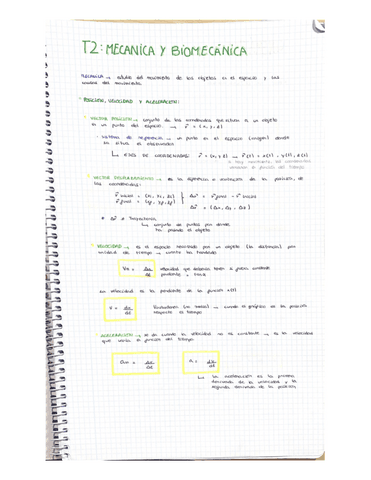 T2: MECANICA Y BIOMECÁNICA
MECANICA → estudio del movimiento de los objetos en el espacio y sus
causas del movimiento.
POSICIÓN, VELOCIDAD Y ACELERACION:
VECTOR POSICIÓN → conjunto de las coordenadas que sitúan a un objeto
en un punto del espacio. → r⃗ = (x, y, z)
Sistema de referencia → un punto en el espacio (origen) donde
se sitúa el observador
↳ EJES DE COORDENADAS: r⃗ = (x, y, z) → r⃗(t) = x(t), y(t), z(t)
si hay movimiento, las coordenadas
varían en función del tiempo
VECTOR DESPLAZAMIENTO → es la diferencia o variación de la posición, de
las coordenadas:
r⃗ inicial = (xi, yi, zi)
Δr⃗ = r⃗ final - r⃗ inicial
r⃗ final = (xf, yf, zf)
Δr⃗ = (Δx, Δy, Δz)
Δr⃗ ≠ Trayectoria
↳ conjunto de puntos por donde
ha pasado el objeto
VELOCIDAD → es el espacio recorrido por un objeto (la distancia) por
unidad de tiempo → cuánto ha tardado
Vm = Δx/Δt
velocidad que debería tener si fuera constante
pendiente = recta
La velocidad es la pendiente de la función x(t)
v = dx/dt
→ cuando el gráfico de la posición
respecto el tiempo
ACELERACION → se da cuando la velocidad no es constante → es la velocidad
que varía en función del tiempo
am = Δv/Δt
a = dv/dt
↳ La aceleración es la primera
derivada de la velocidad y la
segunda derivada de la posición.